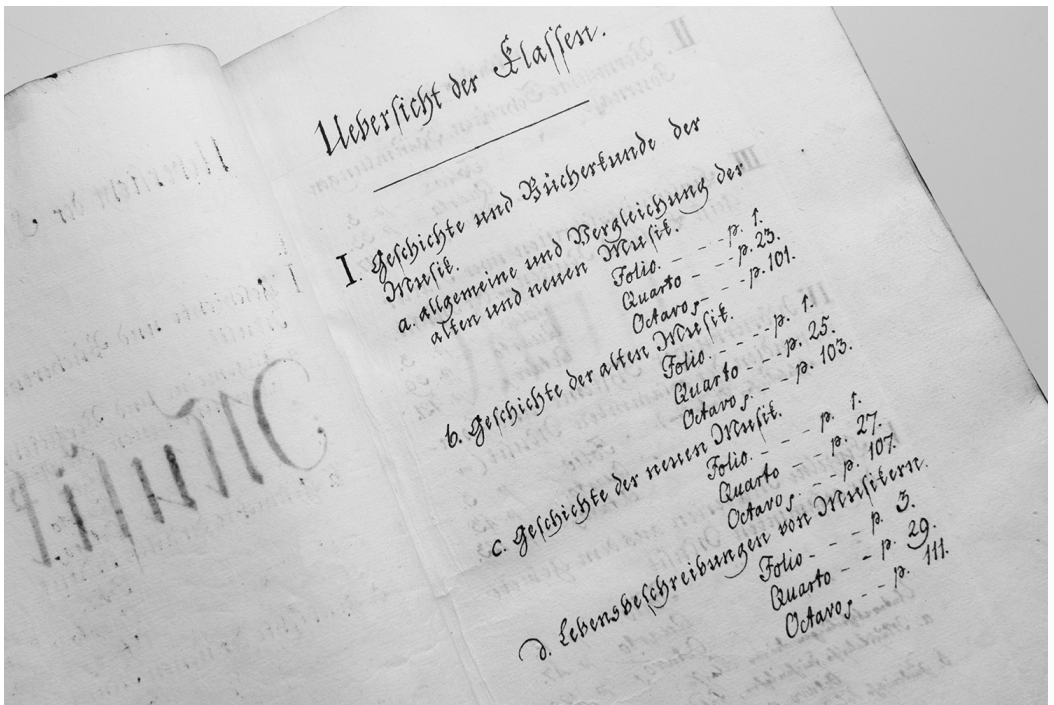 Uebersicht der Klassen.
I. Geschichte und Bücherkunde der
Musik.
a. allgemeine und Vergleichung der
alten und neuen Musik.
Folio. - - p. 1.
Quarto - - p. 23.
Octavo, - - p. 101.
b. Geschichte der alten Musik.
Folio. - - p. 1.
Quarto - - p. 25.
Octavo, - - p. 103.
c. Geschichte der neuen Musik.
Folio. - - p. 1.
Quarto - - p. 27.
Octavo, - - p. 107.
d. Lebensbeschreibungen von Musikern.
Folio - - p. 3.
Quarto - - p. 29.
Octavo, - - p. 111.